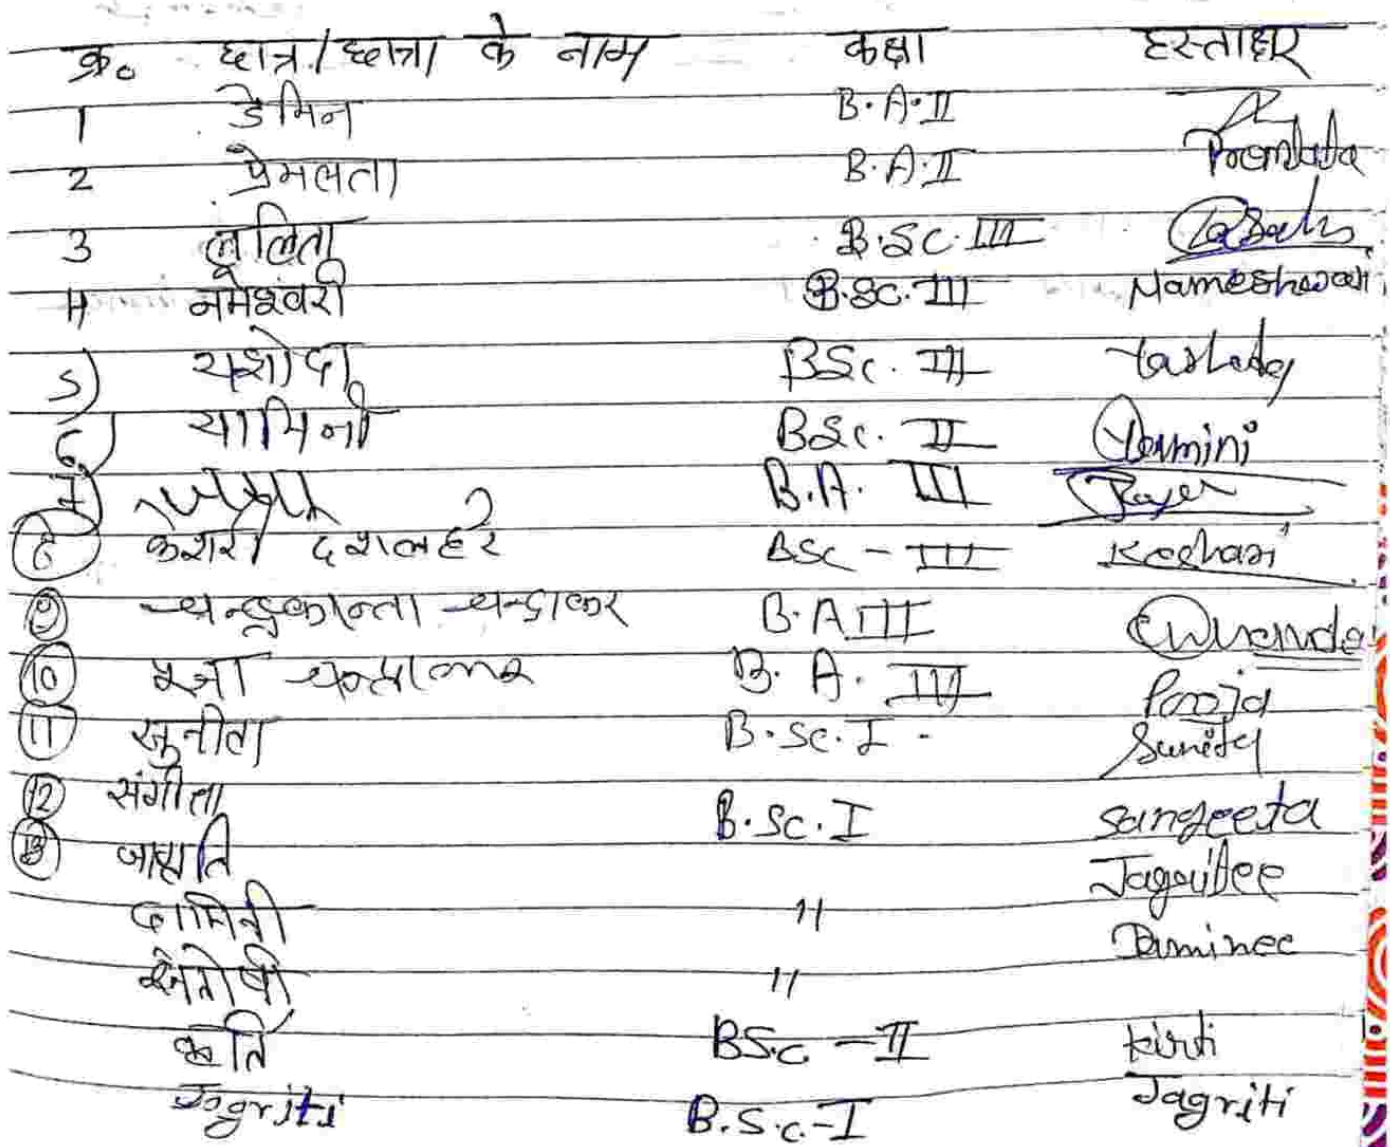 क्र० छात्र/छात्रा के नाम कक्षा हस्ताक्षर
1 डेमिन B.A.II
2 प्रेमलता B.A.II Premlata
3 ललिता B.SC.III
4 नमेश्वरी B.SC.III Nameshwari
5) यशोदा BSc. III
6) यामिनी BSc. II Yamini
7) B.A. III
8 केशरी दशलहरे BSC - III Keshari
9 चन्द्रकान्ता चन्द्राकर B.A III
10 B. A. III Pooja
11 सुनीता B.SC.I - Sunita
12 संगीता B.SC.I Sangeeta
13 जागृति Jagritee
दामिनी " Daminee
संतोषी "
कीर्ति BSc. - II kirti
Jagriti B.S.c.-I Jagriti